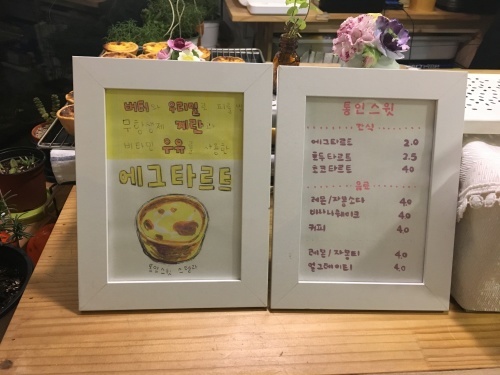 버터와 우리밀로 만든
무항생제 계란과
비타민 우유를
에그타르트
통인스윗
간식
에그타르트 2.0
호두타르트 2.5
초코타르트 4.0
음료
레몬/자몽소다 4.0
바나나쉐이크 4.0
커피 4.0
레몬/자몽티 4.0
얼그레이티 4.0